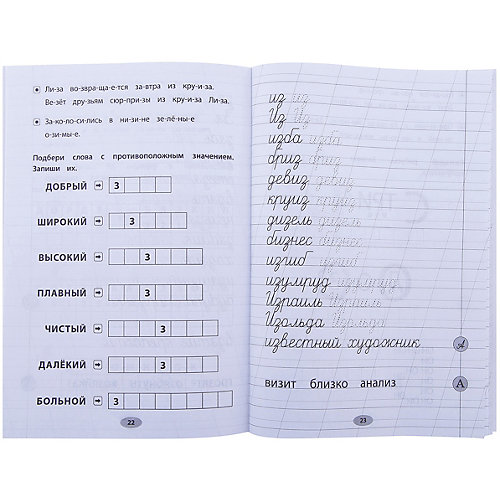 Ли-за во-звра-ща-е-тся за-втра из кру-и-за.
Ве-зёт дру-зьям сюр-при-зы из кру-и-за Ли-за.
За-ко-ло-си-лись в ни-зи-не зе-лё-ны-е
о-зи-мы-е.
Подбери слова с противоположным значением.
Запиши их.
ДОБРЫЙ З
ШИРОКИЙ З
ВЫСОКИЙ З
ПЛАВНЫЙ З
ЧИСТЫЙ З
ДАЛЁКИЙ З
БОЛЬНОЙ З
22
из из
Из Из
изба изба
бриз бриз
девиз девиз
круиз круиз
дизель дизель
бизнес бизнес
изгиб изгиб
изумруд изумруд
Израиль Израиль
Изольда Изольда
известный художник А
визит близко анализ А
23